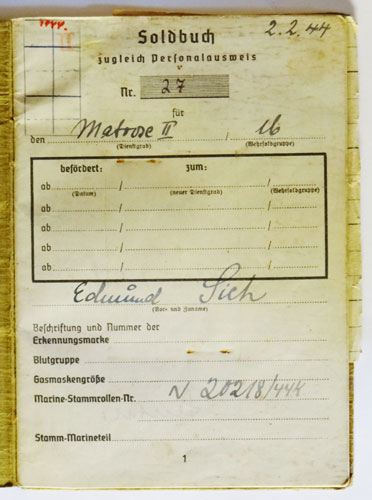 Soldbuch 2.2.44
zugleich Personalausweis
Nr. 27
für
den Matrose II / 16
(Dienstgrad) (Wehrsoldgruppe)
befördert: zum:
ab / /
(Datum) (neuer Dienstgrad) (Wehrsoldgruppe)
ab / /
ab / /
ab / /
ab / /
Edmund Sich
(Vor- und Zuname)
Beschriftung und Nummer der
Erkennungsmarke
Blutgruppe
Gasmaskengröße
Marine-Stammrollen-Nr. N 20218/44K
Stamm-Marineteil
1